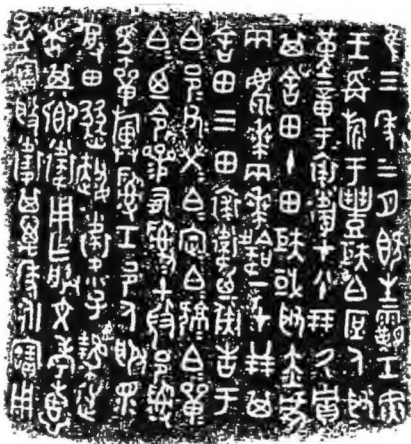 隹三年三月既生霸壬寅
王爯旂于豐矩白庶人取
堇章于裘衛才八十朋厥貯
其舍田十田矩或取赤虎
兩兩韐一才廿朋其
舍田三田裘衛迺彘告于
白邑父榮白定白白單
白迺令參有𤔲𤔲土微邑𤔲
馬單旟𤔲工邑人服眔
受田燹趞衛小子逆
者其鄉衛用乍朕文考惠
孟寶般衛其萬年永寶用